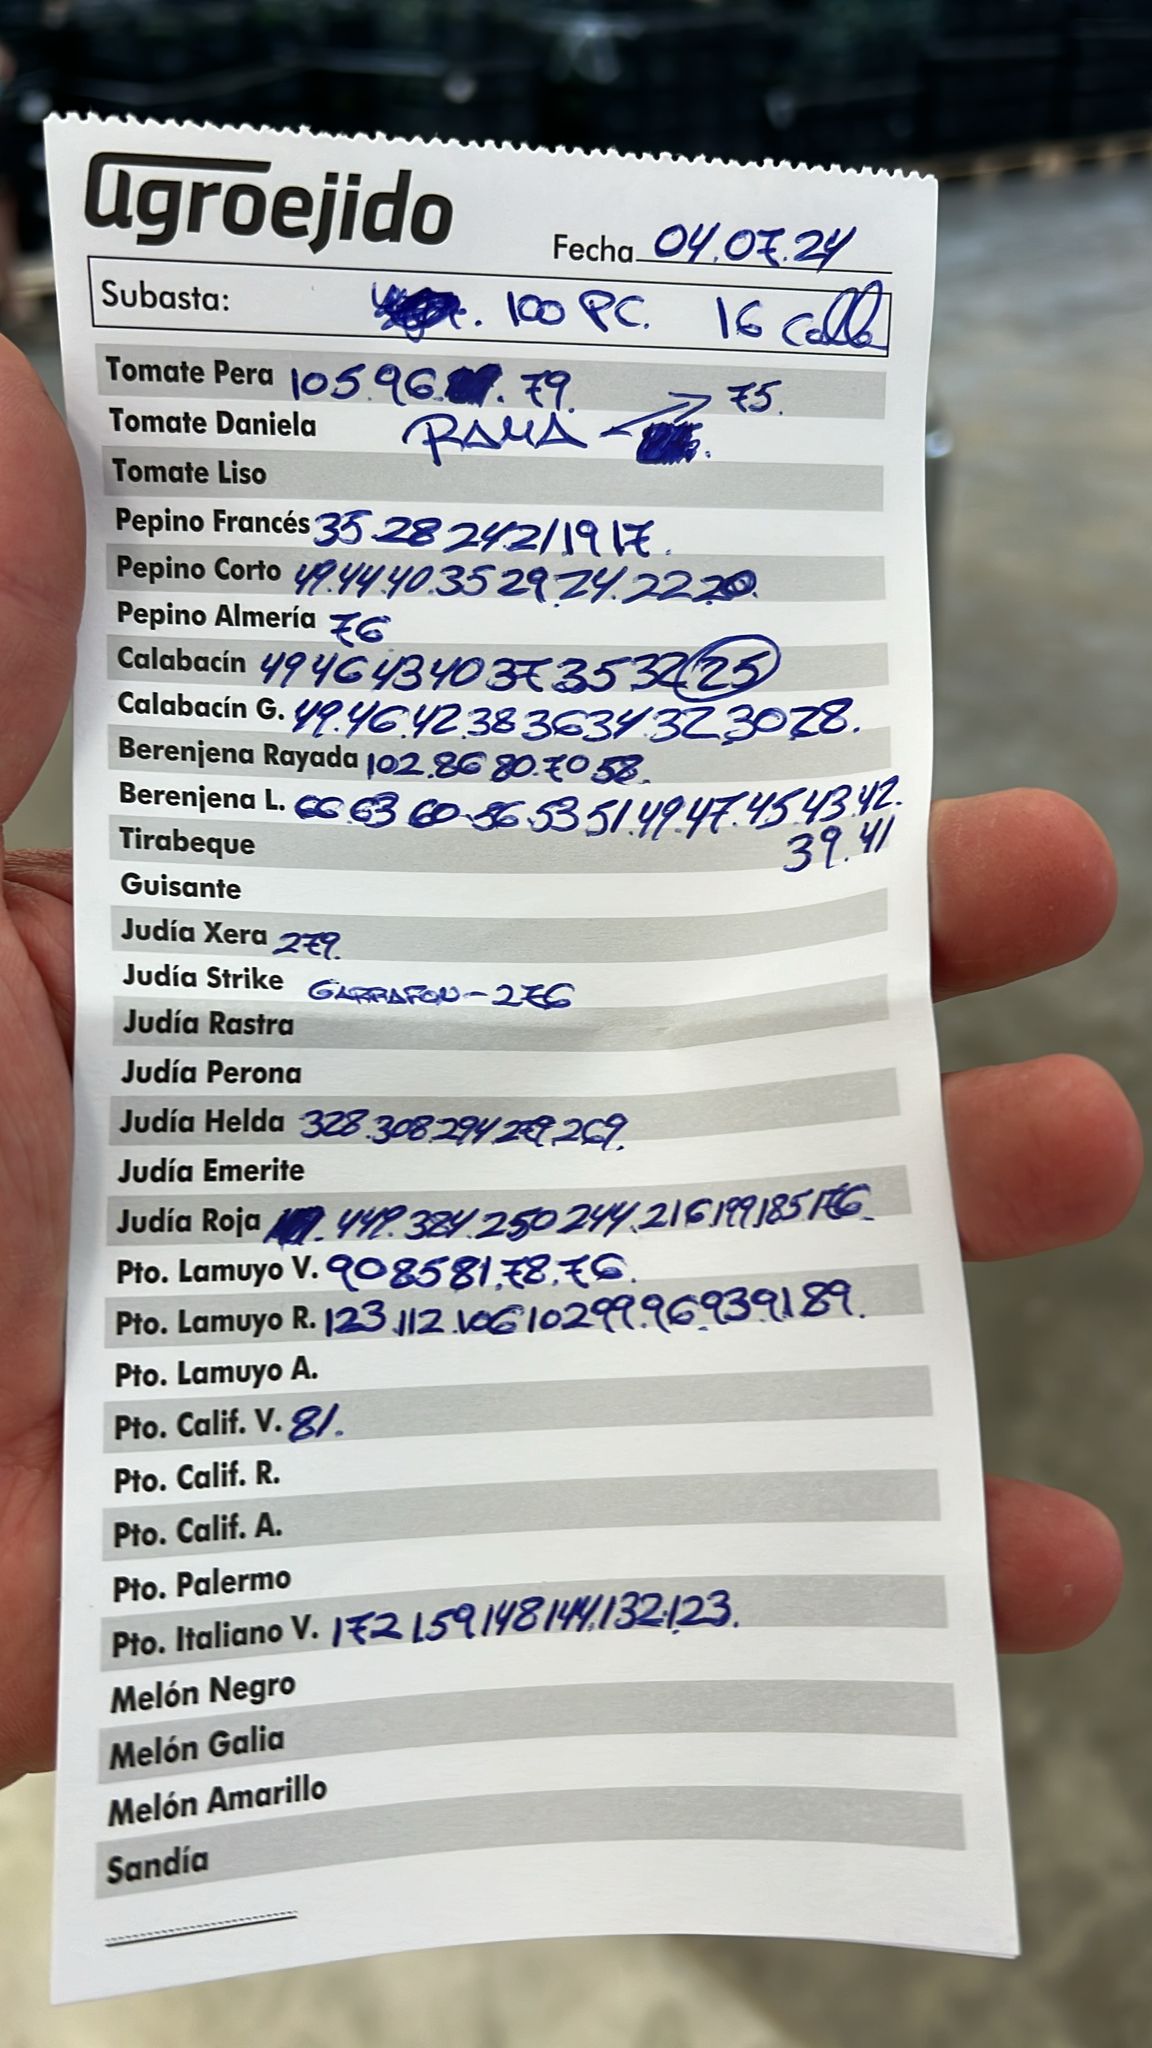 agroejido
Fecha 04.07.24
Subasta: 100 PC. 16 Calle
Tomate Pera 105.96. 79. 75.
Tomate Daniela RAMA
Tomate Liso
Pepino Francés 35.28 24 21 19 17.
Pepino Corto 49.44.40.35 29.24.22 20.
Pepino Almería 76
Calabacín 49 46 43 40 37 35 32 25
Calabacín G. 49.46.42.38 36 34 32 30 28.
Berenjena Rayada 102.86 80.70 58.
Berenjena L. 66.63 60-56.53 51.49.47.45 43.42.
39.41
Tirabeque
Guisante
Judía Xera 279.
Judía Strike GARRAFON-276
Judía Rastra
Judía Perona
Judía Helda 328.308.294.279.269.
Judía Emerite
Judía Roja 449.384.250 244.216 199 185 176
Pto. Lamuyo V. 90 85 81.78.76.
Pto. Lamuyo R. 123.112.106 102 99.96.93 91 89.
Pto. Lamuyo A.
Pto. Calif. V. 81.
Pto. Calif. R.
Pto. Calif. A.
Pto. Palermo
Pto. Italiano V. 172 159 148 144.132.123.
Melón Negro
Melón Galia
Melón Amarillo
Sandía